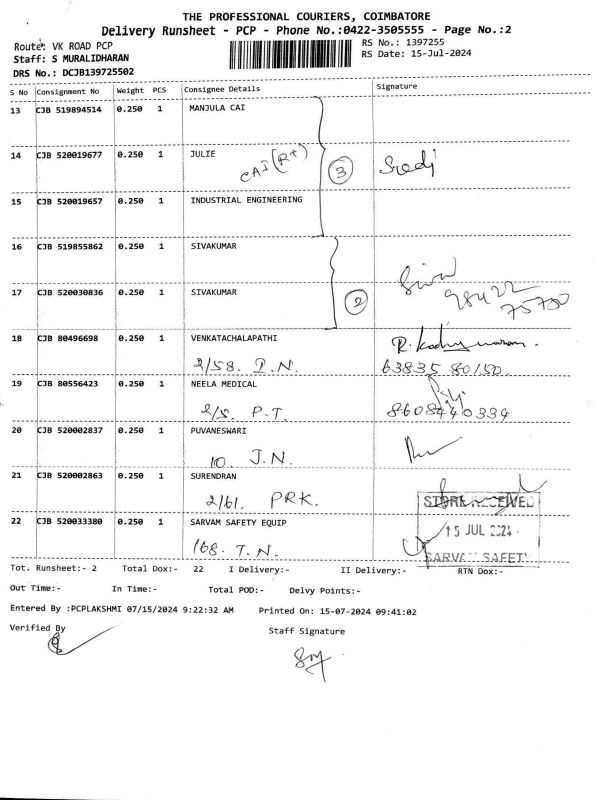 THE PROFESSIONAL COURIERS, COIMBATORE
Delivery Runsheet - PCP - Phone No.:0422-3505555 - Page No.:2
Route: VK ROAD PCP
RS No.: 1397255
Staff: S MURALIDHARAN
RS Date: 15-Jul-2024
DRS No.: DCJB139725502
S No Consignment No Weight PCS Consignee Details Signature
13 CJB 519894514 0.250 1 MANJULA CAI
14 CJB 520019677 0.250 1 JULIE
CAI (R+) 3
15 CJB 520019657 0.250 1 INDUSTRIAL ENGINEERING
16 CJB 519855862 0.250 1 SIVAKUMAR
Siva
98422
75750
17 CJB 520030836 0.250 1 SIVAKUMAR
2
18 CJB 80496698 0.250 1 VENKATACHALAPATHI
2/58. I.N. 63835 80150.
19 CJB 80556423 0.250 1 NEELA MEDICAL
2/5. P.T. 8608440334
20 CJB 520002837 0.250 1 PUVANESWARI
10. J.N.
21 CJB 520002863 0.250 1 SURENDRAN
2/61. PRK.
STORE RECEIVED
22 CJB 520033380 0.250 1 SARVAM SAFETY EQUIP
15 JUL 2024
168. T.N.
SARVAM SAFETY
Tot. Runsheet:- 2 Total Dox:- 22 I Delivery:- II Delivery:- RTN Dox:-
Out Time:- In Time:- Total POD:- Delvy Points:-
Entered By :PCPLAKSHMI 07/15/2024 9:22:32 AM Printed On: 15-07-2024 09:41:02
Verified By
Staff Signature